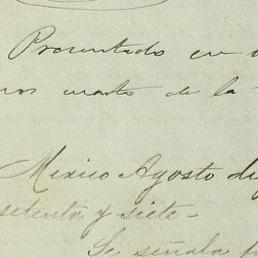 Presentado en
cuarto de la
Mexico Agosto
setenta y siete-
Se señala